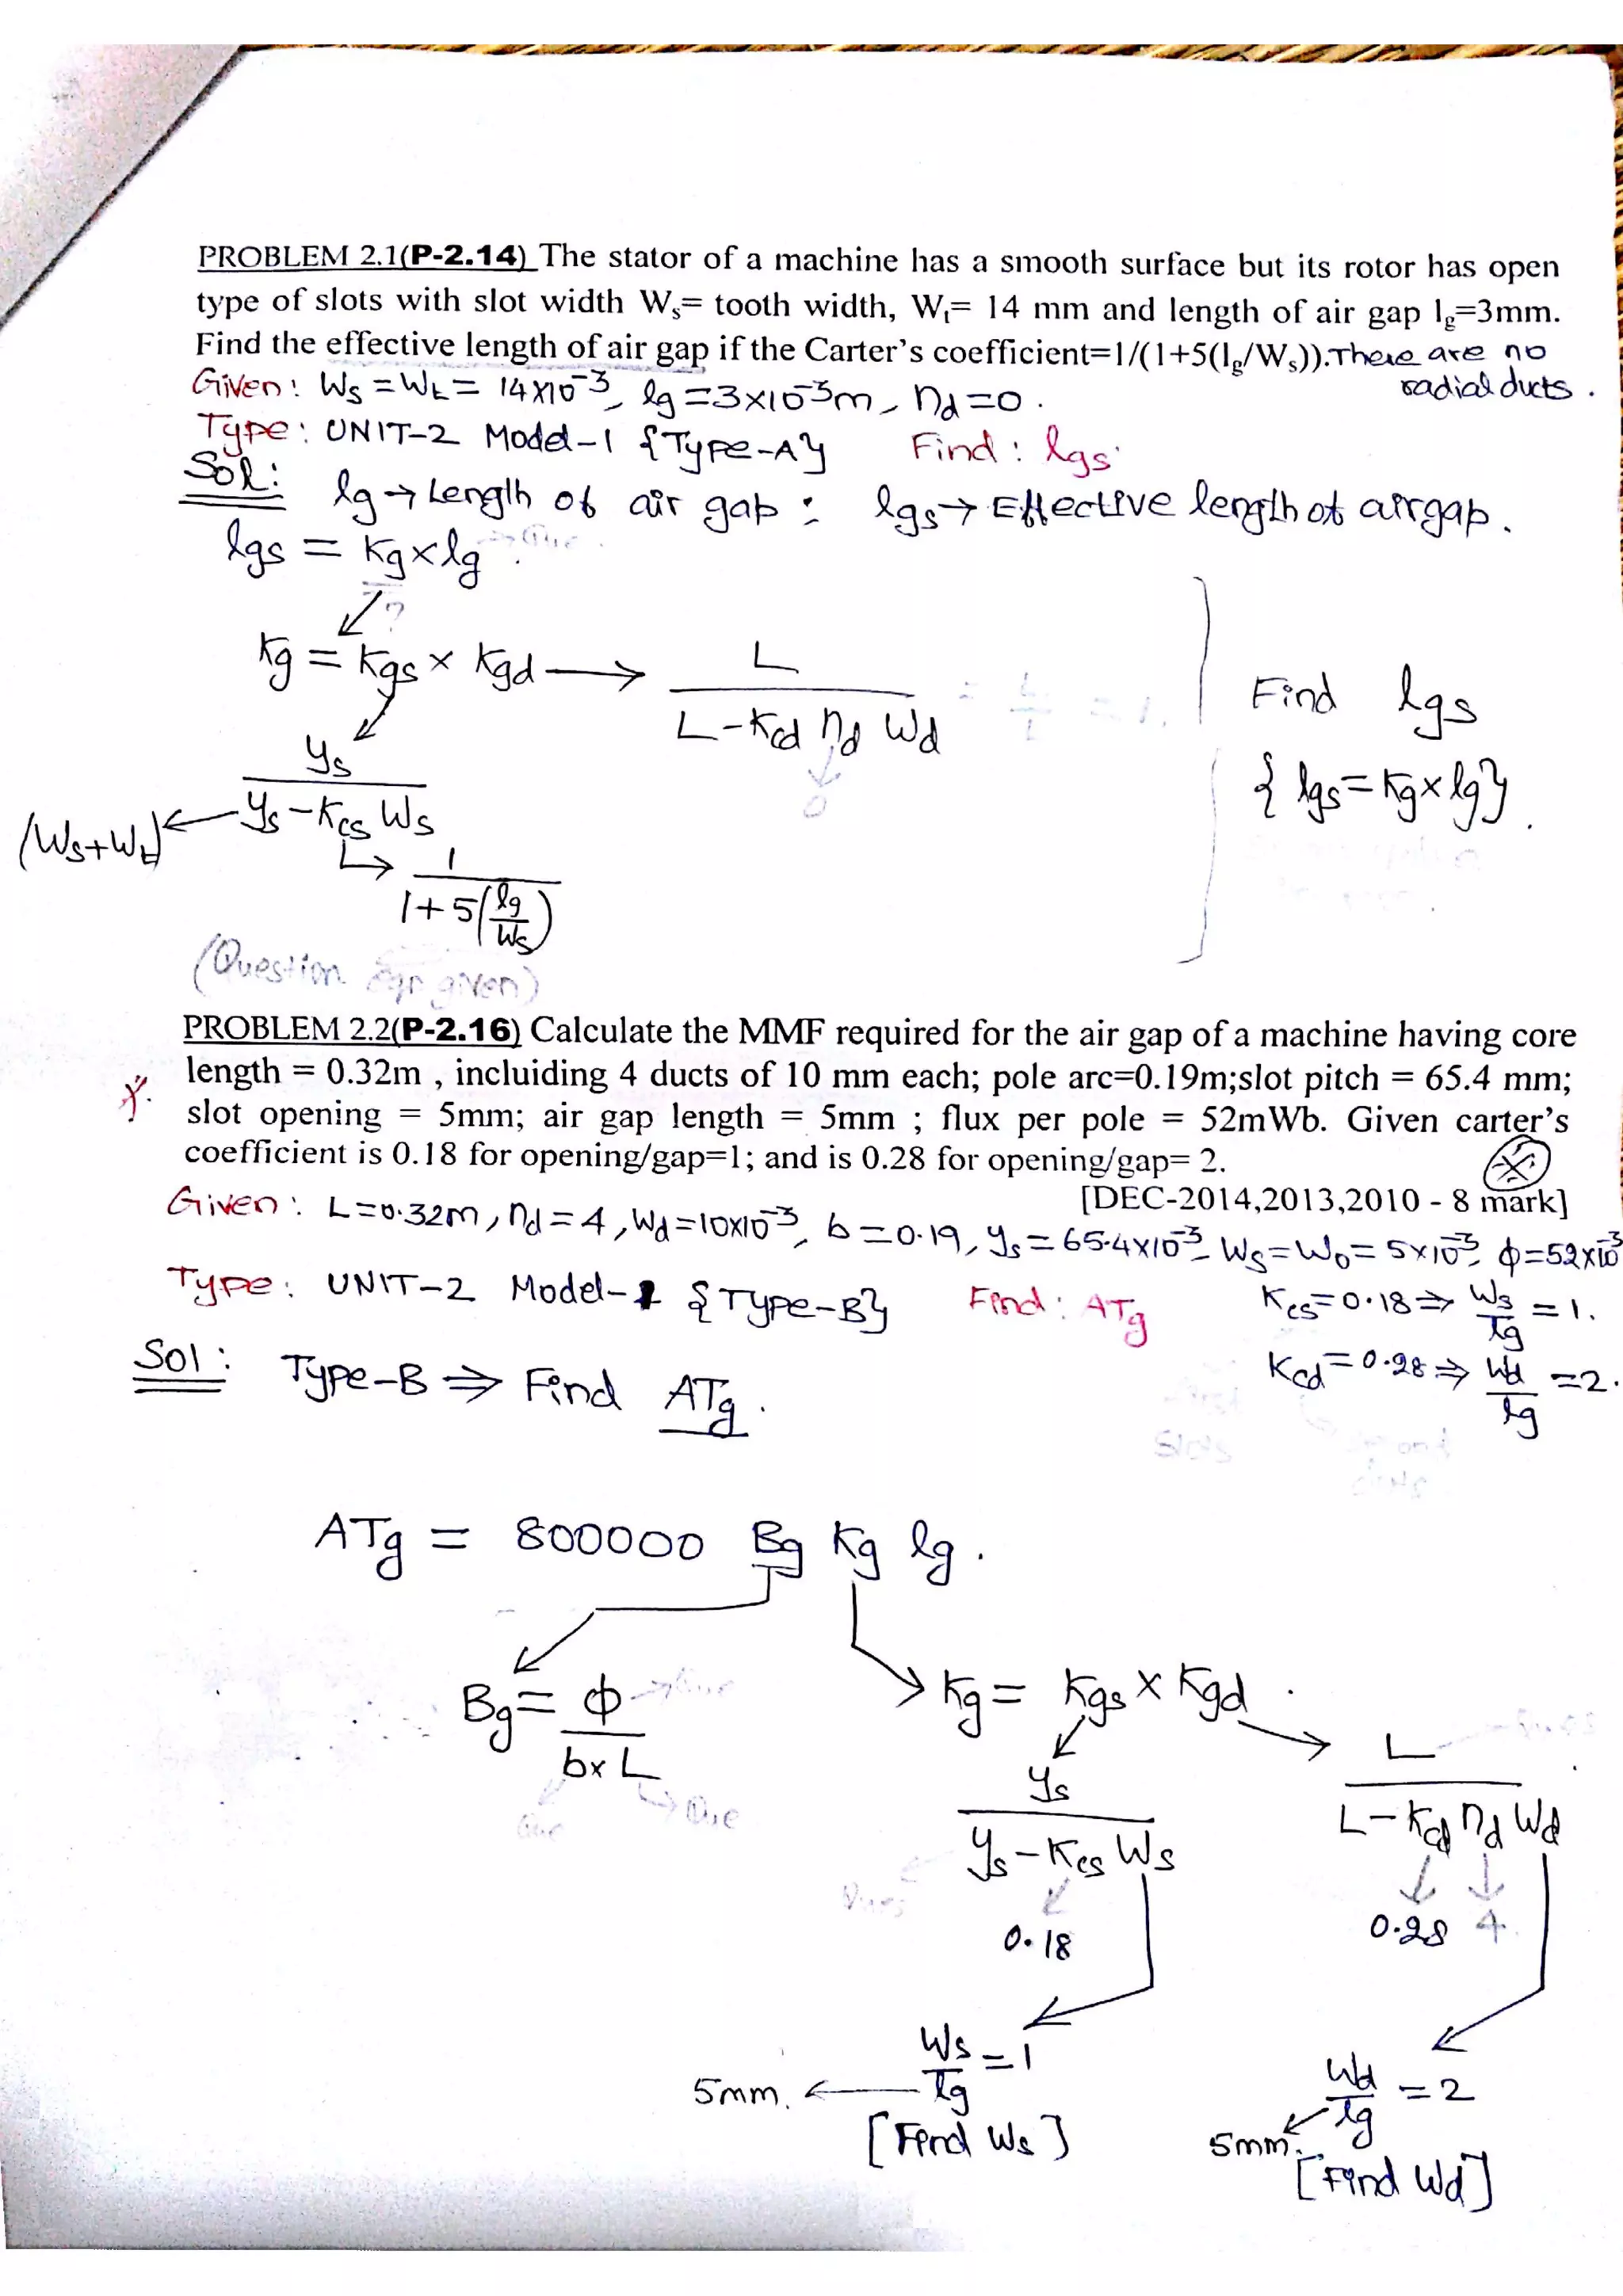 PROBLEM 2.1(P-2.14) The stator of a machine has a smooth surface but its rotor has open
type of slots with slot width Ws= tooth width, Wt= 14 mm and length of air gap lg=3mm.
Find the effective length of air gap if the Carter's coefficient=1/(1+5(lg/Ws)).There are no
radial ducts.
Given: Ws = Wt = 14×10⁻³, lg = 3×10⁻³m, nd = 0.
Type: UNIT-2 Model-1 {Type-A} Find: lgs.
Sol: lg → Length of air gap : lgs → Effective length of airgap.
lgs = Kg×lg → Que.
?
Kg = Kgs × Kgd → L / (L-Kcd nd Wd) = L/L = 1.
0
Find lgs
{lgs = Kg×lg}.
ys / (ys-Kcs Ws)
(Ws+Wt)
1 / (1+5(lg/Ws))
(Question given)
PROBLEM 2.2(P-2.16) Calculate the MMF required for the air gap of a machine having core
length = 0.32m , incluiding 4 ducts of 10 mm each; pole arc=0.19m;slot pitch = 65.4 mm;
slot opening = 5mm; air gap length = 5mm ; flux per pole = 52mWb. Given carter's
coefficient is 0.18 for opening/gap=1; and is 0.28 for opening/gap= 2.
[DEC-2014,2013,2010 - 8 mark]
Given: L=0.32m, nd=4, Wd=10×10⁻³, b=0.19, ys=65.4×10⁻³, Ws=Wo=5×10⁻³, φ=52×10⁻³
Type: UNIT-2 Model-1 {Type-B} Find: ATg Kcs=0.18 ⇒ Ws/lg = 1.
Sol: Type-B ⇒ Find ATg. Kcd=0.28 ⇒ Wd/lg = 2.
Slots
ATg = 800000 Bg Kg lg.
Bg = φ / (b×L)
Que Que
Kg = Kgs × Kgd.
ys / (ys-Kcs Ws)
L / (L-Kcd nd Wd)
0.18
0.28 4
Ws/lg = 1
5mm.
[Find Ws]
Wd/lg = 2
5mm.
[Find Wd]